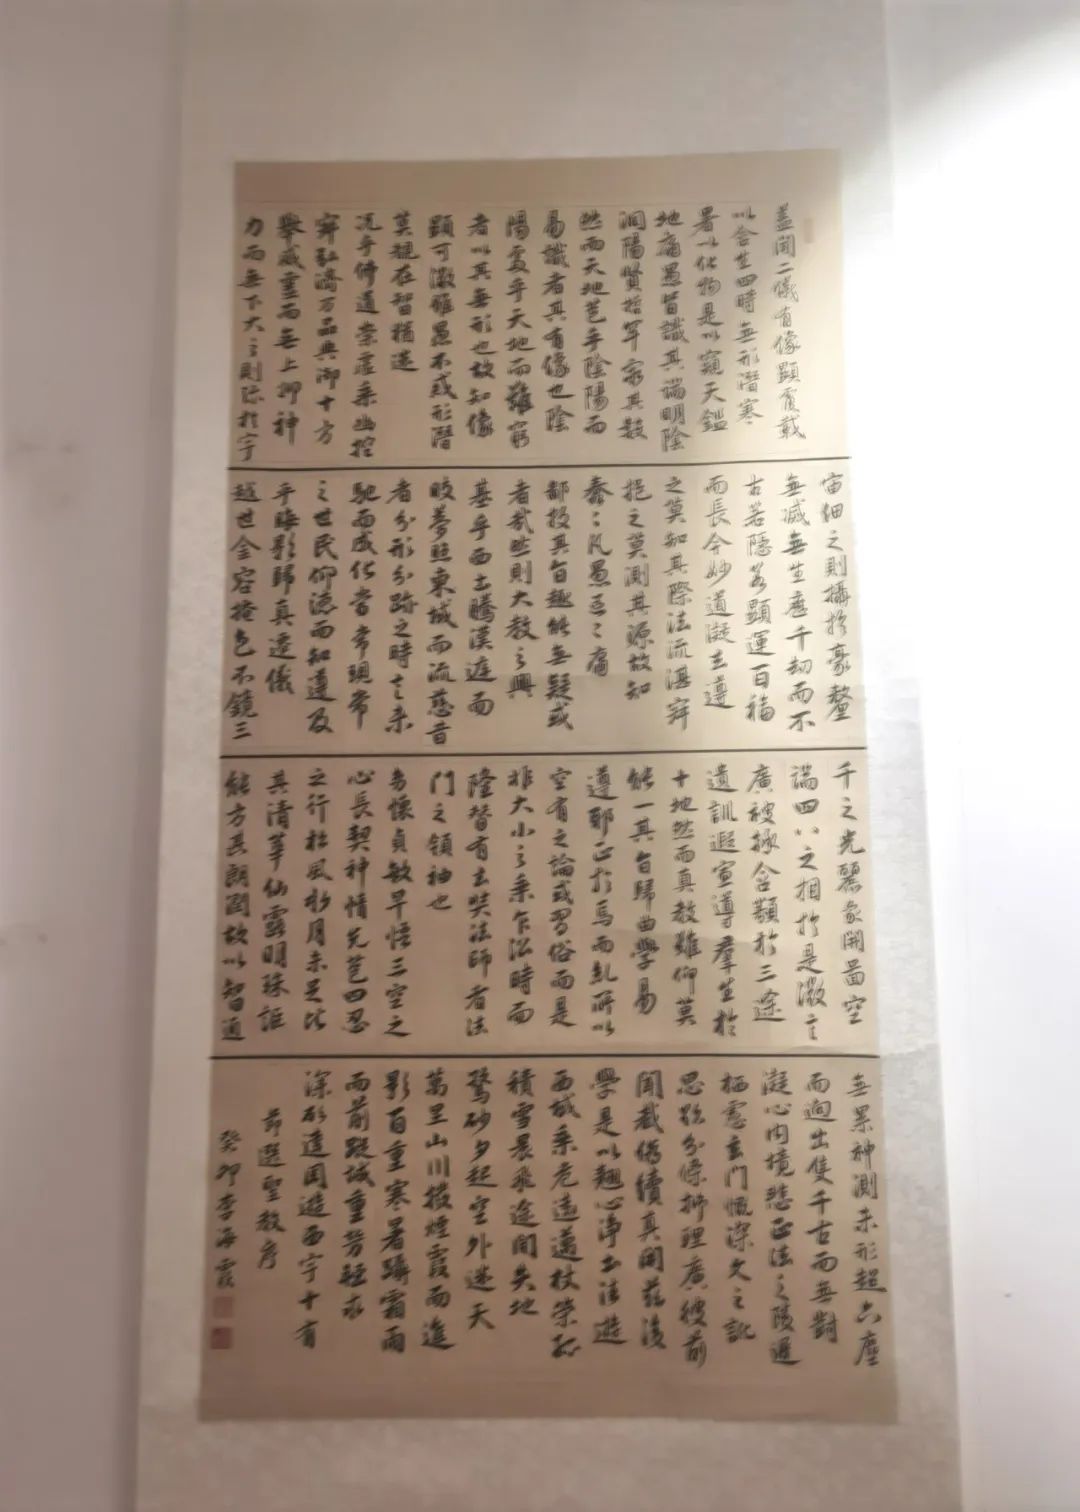 蓋聞二儀有像顯覆載
以含生四時無形潛寒
暑以化物是以窺天鑑
地庸愚皆識其端明陰
洞陽賢哲罕窮其數
然而天地苞乎陰陽而
易識者其有像也陰
陽處乎天地而難窮
者以其無形也故知像
顯可徵雖愚不惑形潛
莫覩在智猶迷
况乎佛道崇虛乘幽控
寂弘濟万品典御十方
舉威靈而無上抑神
力而無下大之則弥於宇
宙細之則攝於豪釐
無滅無生歷千劫而不
古若隱若顯運百福
而長今妙道凝玄遵
之莫知其際法流湛寂
挹之莫測其源故知
蠢々凡愚區々庸
鄙投其旨趣能無疑或
者哉然則大教之興
基乎西土騰漢庭而
皎夢照東域而流慈昔
者分形分跡之時言未
馳而成化當常現常
之世民仰德而知遵及
乎晦影歸真遷儀
越世金容掩色不鏡三
千之光麗象開圖空
端四八之相於是微言
廣被拯含類於三途
遺訓遐宣導羣生於
十地然而真教難仰莫
能一其旨歸曲學易
遵耶正於焉而亂所以
空有之論或習俗而是
非大小之乘乍沿時而
隆替有玄奘法師者法
門之領袖也
幼懷貞敏早悟三空之
心長契神情先苞四忍
之行松風水月未足比
其清華仙露明珠詎
能方其朗潤故以智通
無累神測未形超六塵
而迥出隻千古而無對
凝心內境悲正法之陵遲
栖慮玄門慨深文之訛
思欲分條析理廣彼前
聞截偽續真開茲後
學是以翹心淨土法遊
西域乘危遠邁杖策孤
積雪晨飛途間失地
驚砂夕起空外迷天
萬里山川撥煙霞而進
影百重寒暑躡霜雨
而前蹤誠重勞輕求
深願達周遊西宇十有
節選聖教序
癸卯李海霞